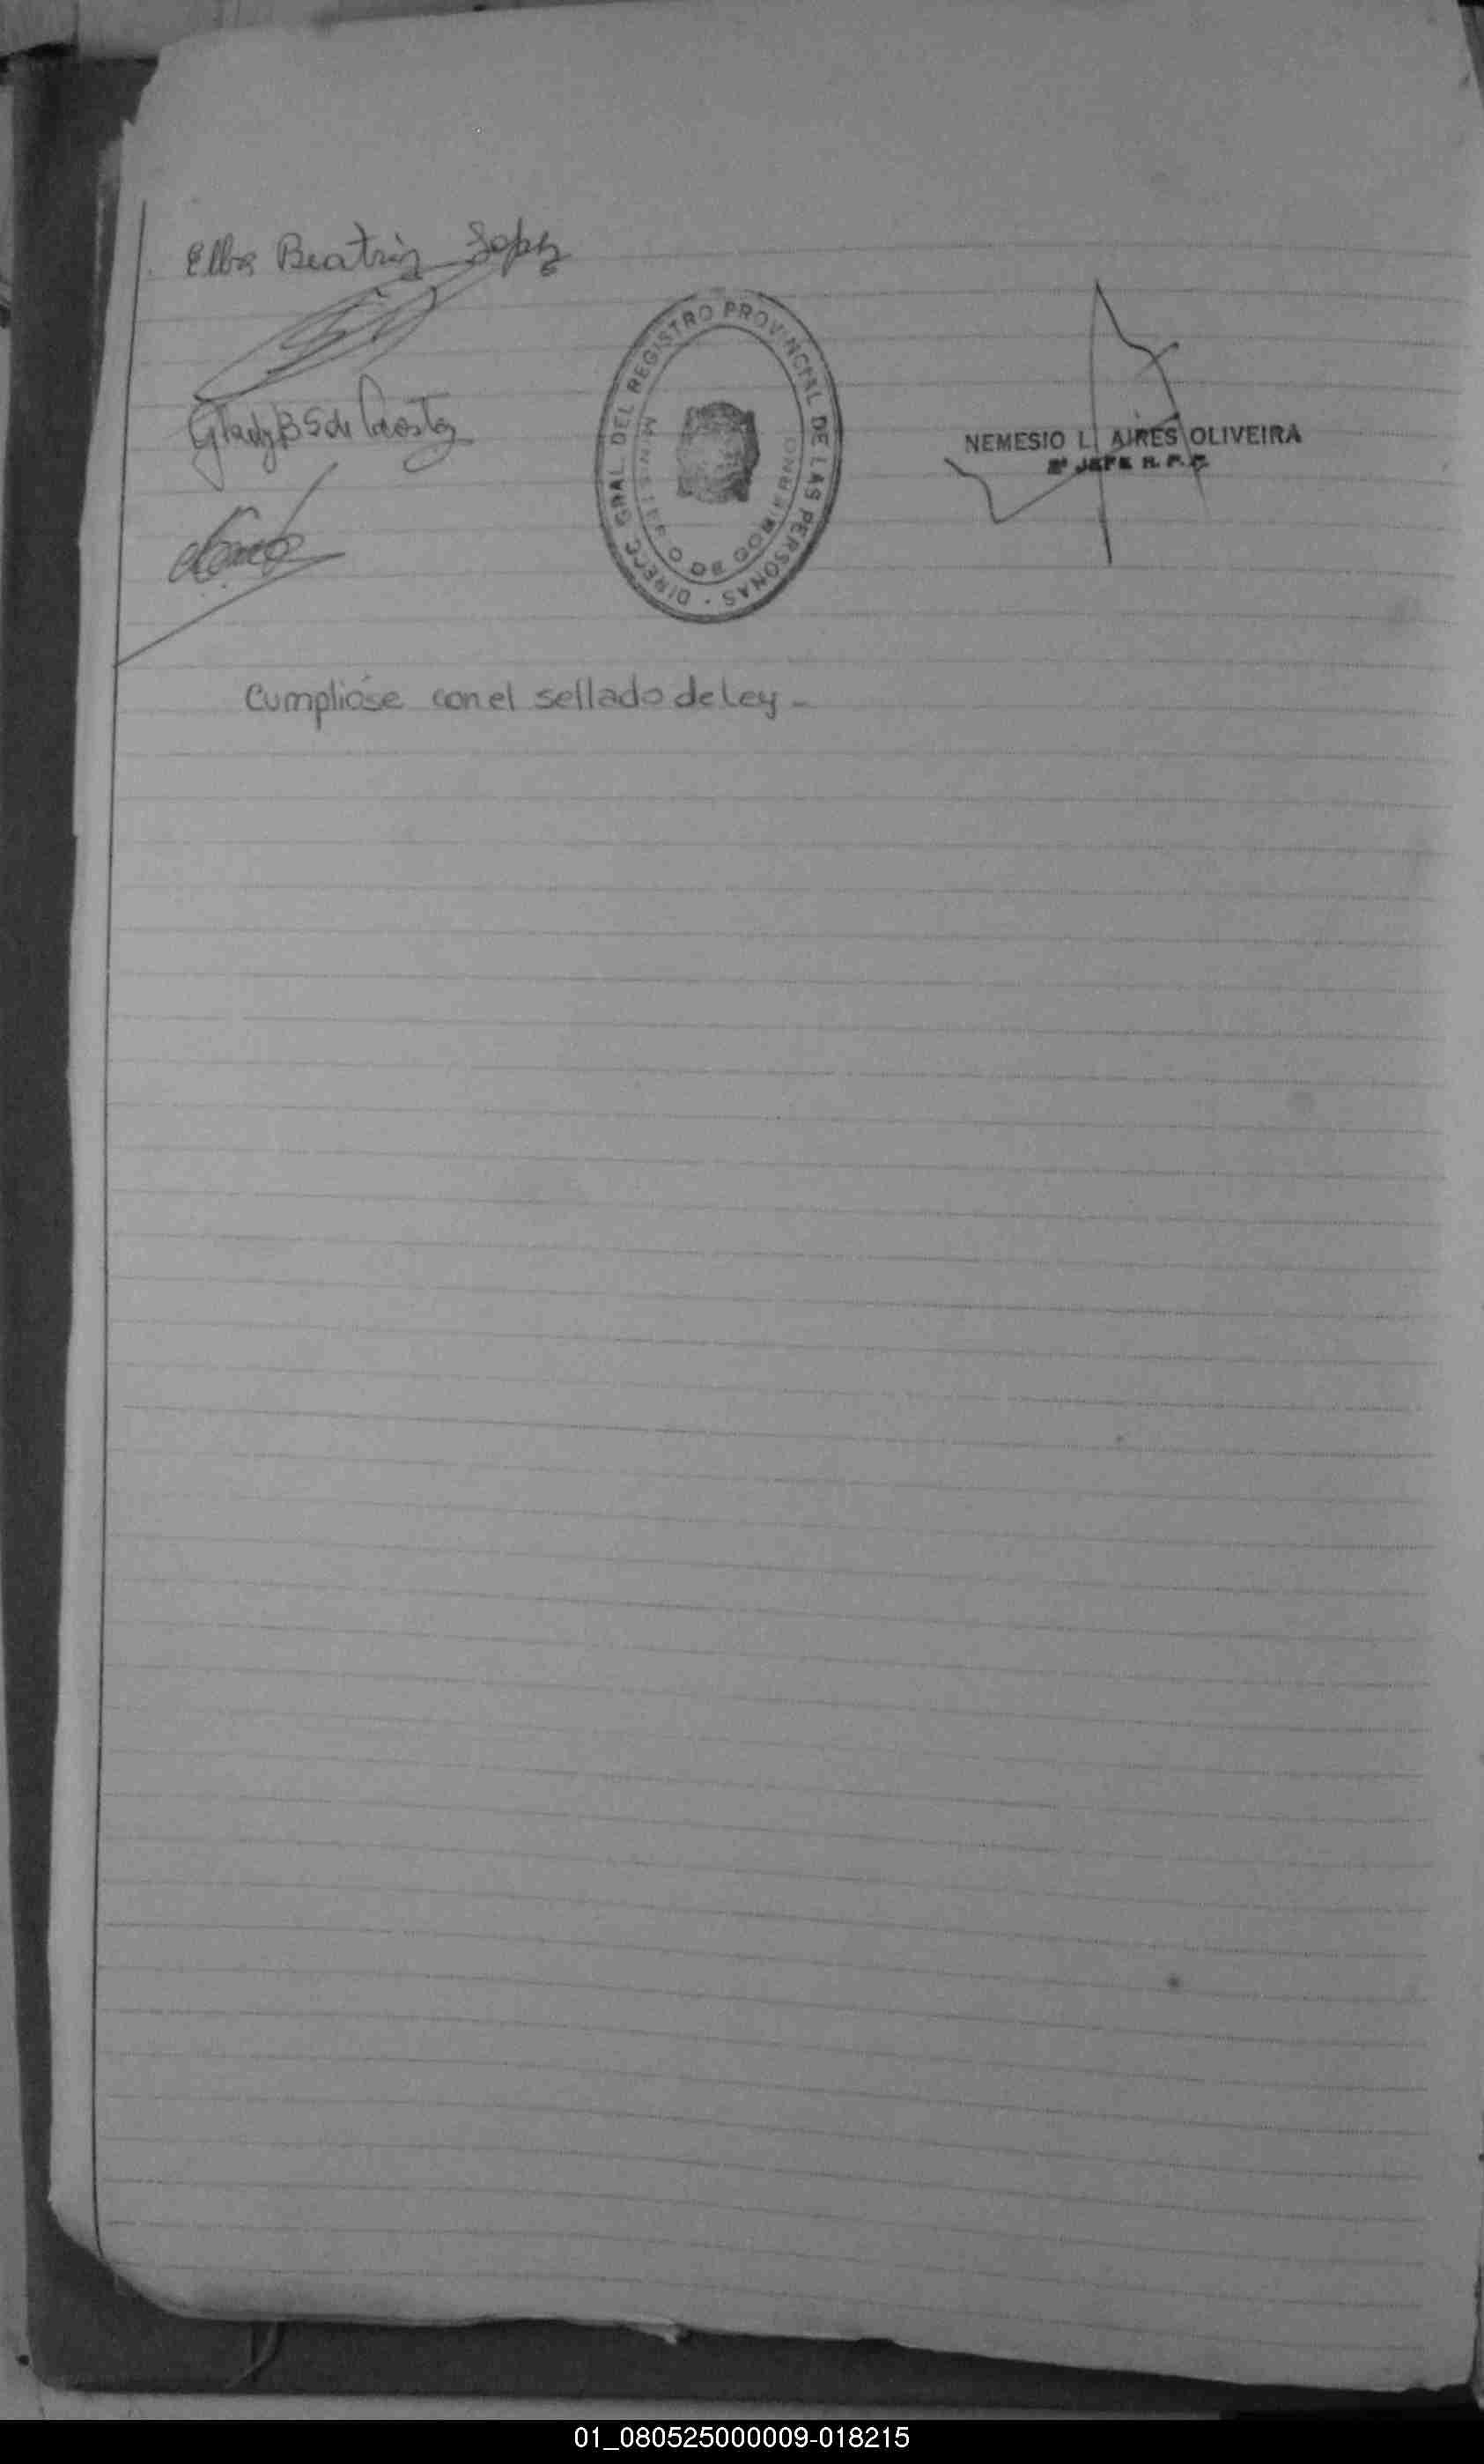 Elba Beatriz Lopez
DIRECC. GRAL. DEL REGISTRO PROVINCIAL DE LAS PERSONAS ·
MINISTERIO DE GOBIERNO
NEMESIO L. AIRES OLIVEIRA
2º JEFE R. P. P.
Cumplióse con el sellado de Ley -
01_080525000009-018215